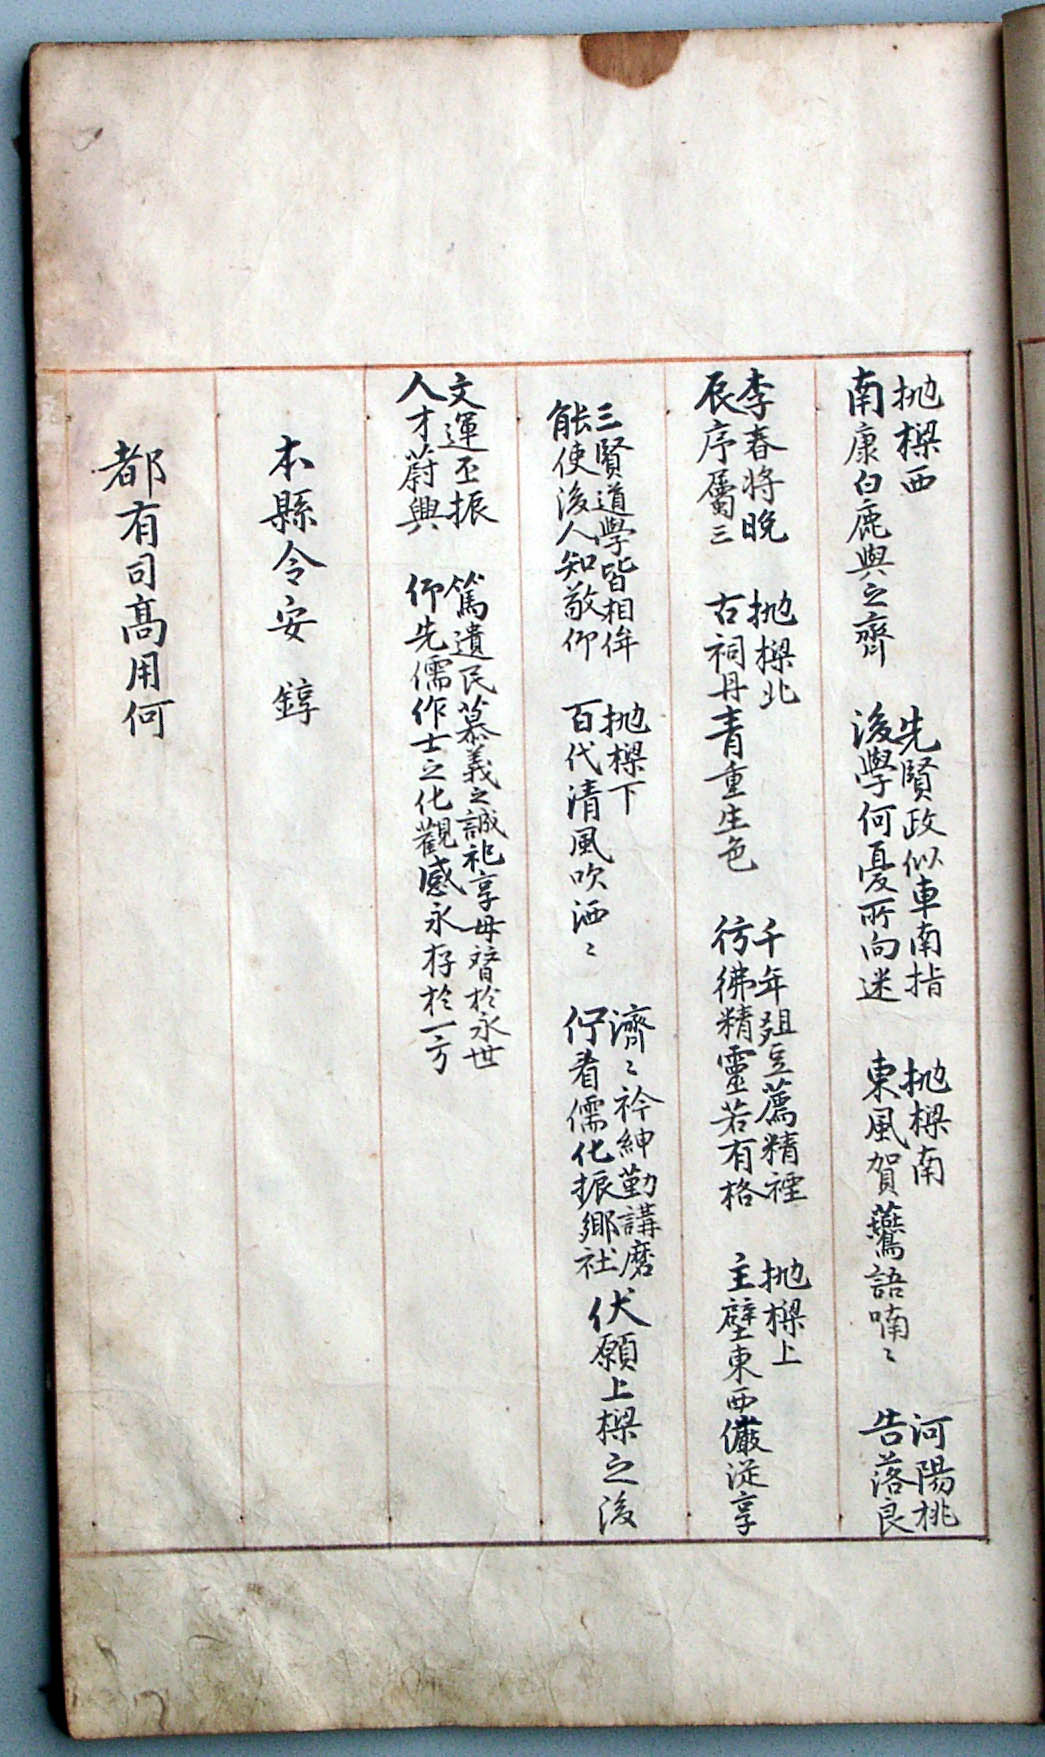 抛樑西
南康白鹿與之齊
先賢政似車南指
後學何憂所向迷
抛樑南
東風賀鷰語喃〻
河陽桃
告落良
李春將晩
辰序屬三
抛樑北
古祠丹青重生色
千年爼豆薦精禋
彷彿精靈若有格
抛樑上
主壁東西儼從享
三賢道學皆相侔
能使後人知敬仰
抛樑下
百代清風吹洒〻
濟〻衿紳勤講磨
佇看儒化振鄉社
伏願上樑之後
文運丕振
人才蔚興
篤遺民慕義之誠祀享毋替於永世
仰先儒作士之化觀感永存於一方
本縣令安 錞
都有司髙用何